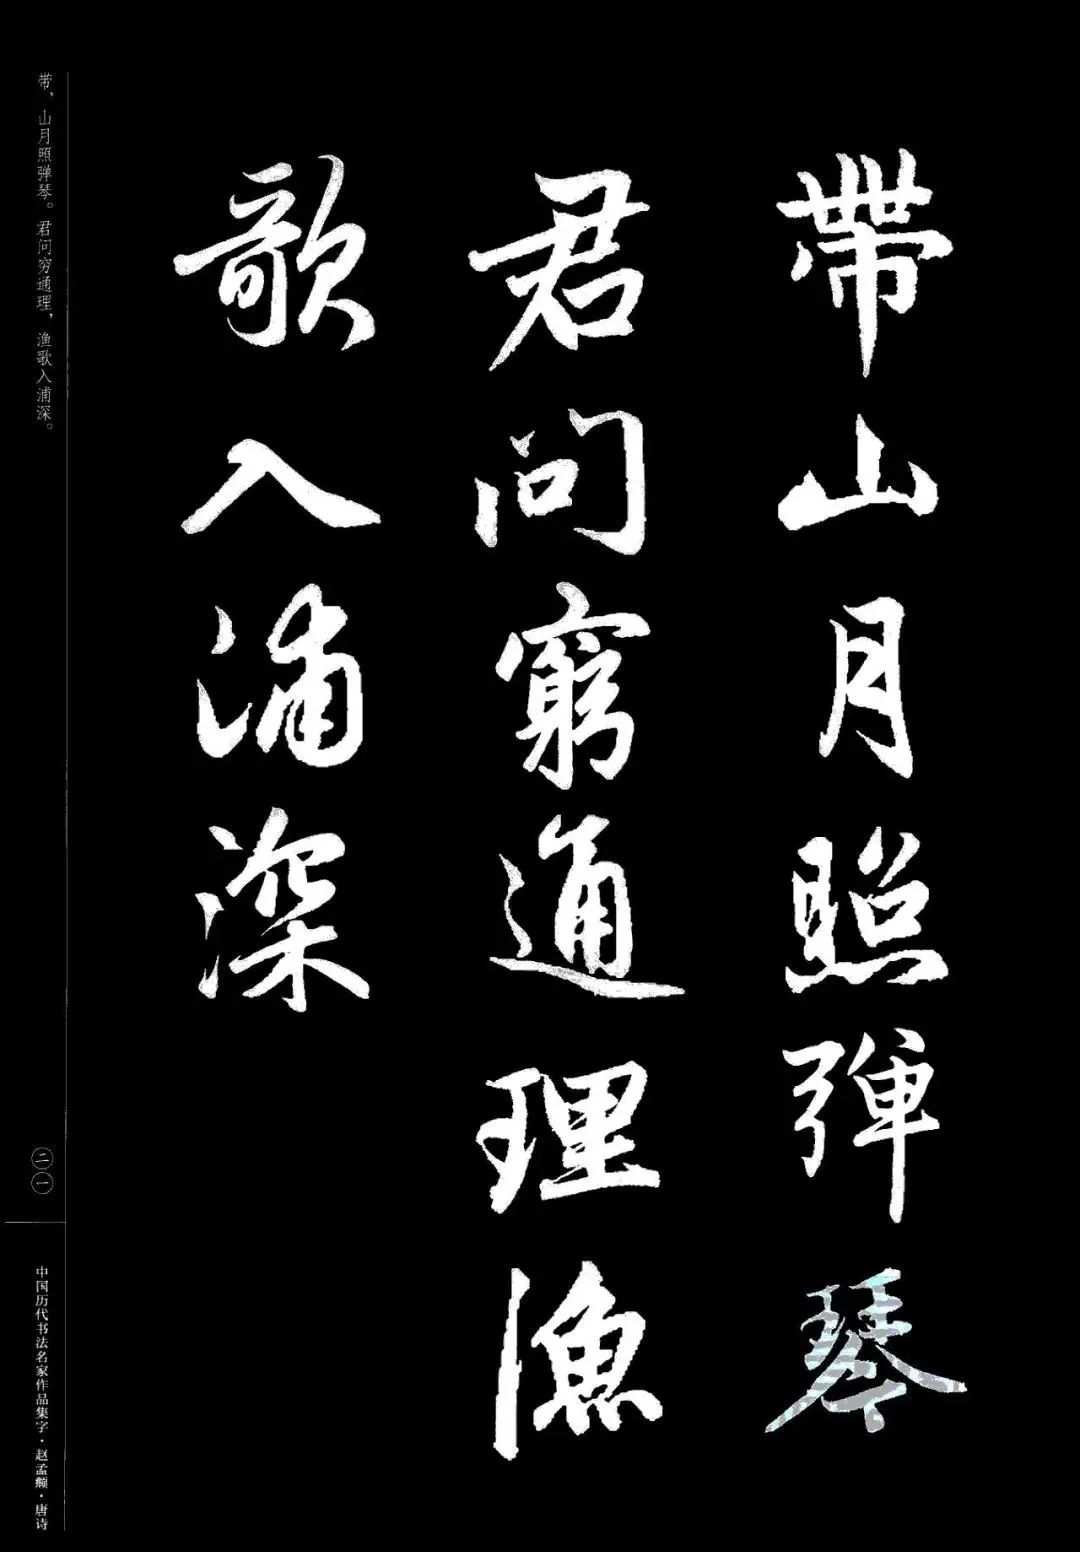 帶山月照彈琴
君問窮通理漁
歌入浦深
带，山月照弹琴。君问穷通理，渔歌入浦深。
二一
中国历代书法名家作品集字·赵孟頫·唐诗